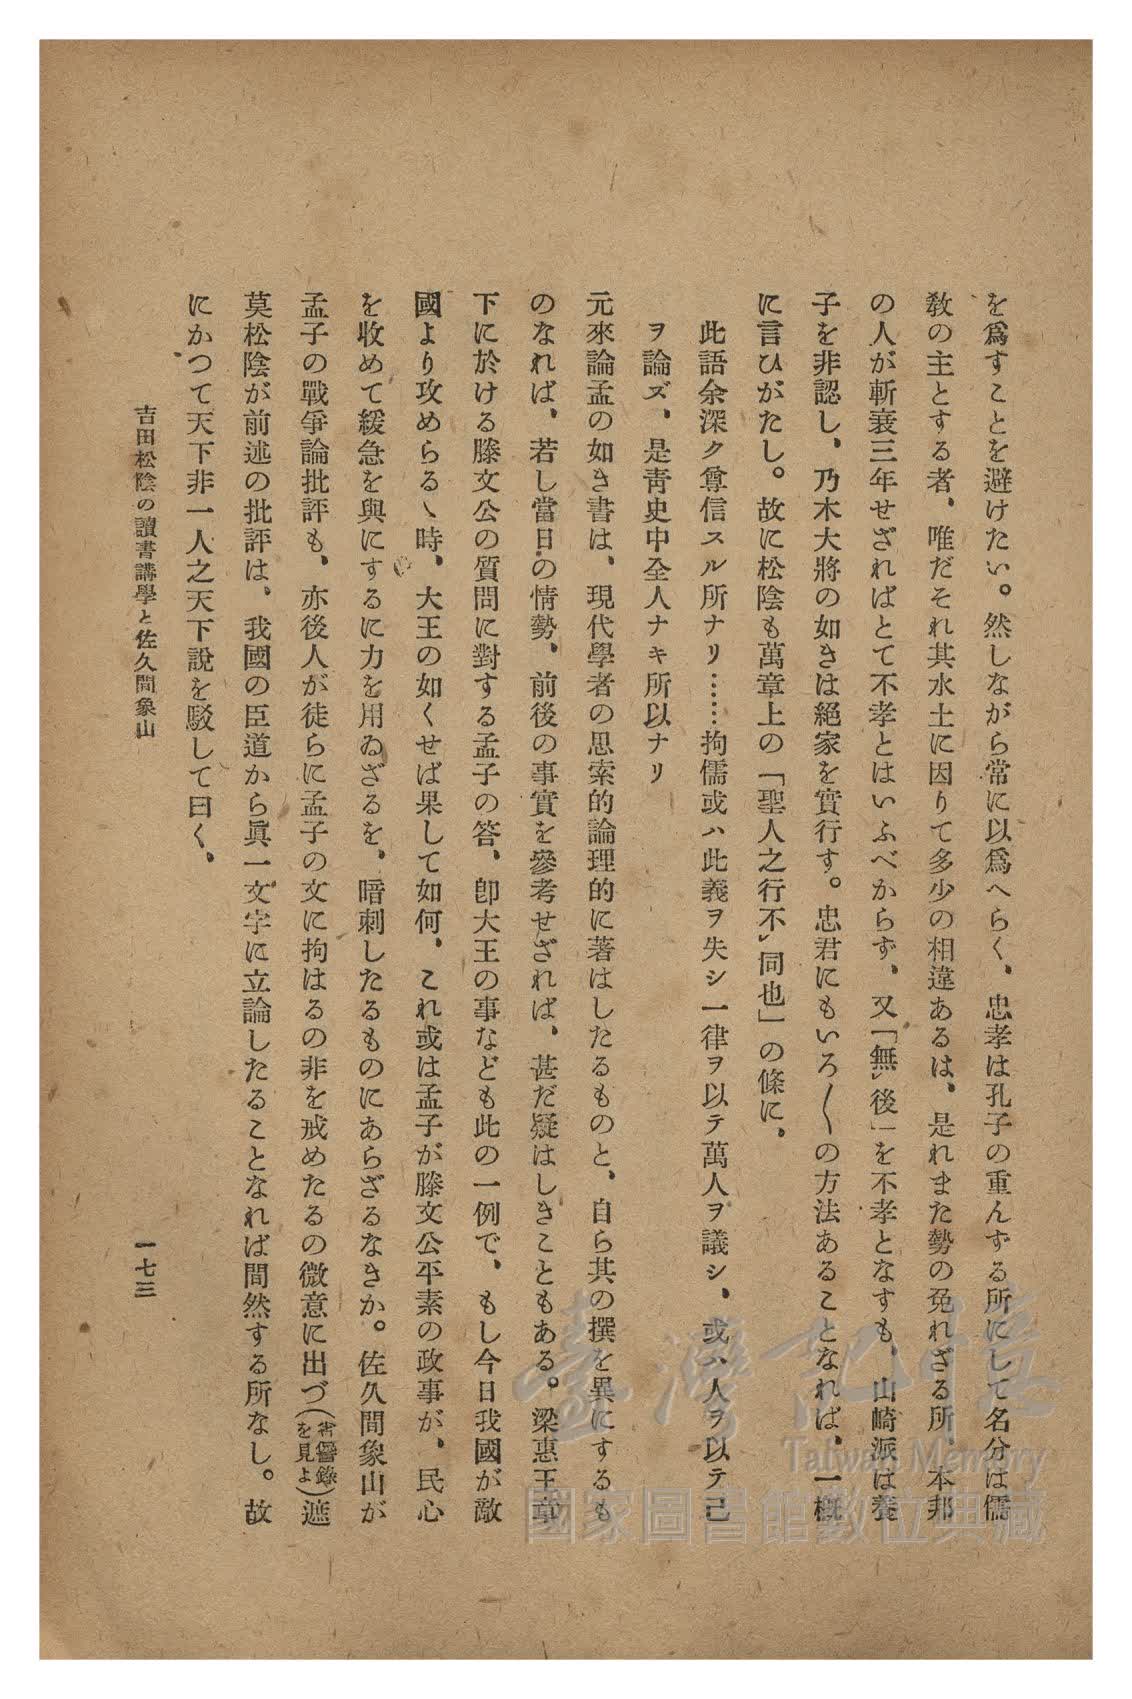 を爲すことを避けたい。然しながら常に以爲へらく、忠孝は孔子の重んずる所にして名分は儒
敎の主とする者、唯だそれ其水土に因りて多少の相違あるは、是れまた勢の免れざる所、本邦
の人が斬衰三年せざればとて不孝とはいふべからず、又「無後」を不孝となすも、山崎派は養
子を非認し、乃木大將の如きは絕家を實行す。忠君にもいろ〱の方法あることなれば、一槪
に言ひがたし。故に松陰も萬章上の「聖人之行不同也」の條に、
此語余深ク尊信スル所ナリ……拘儒或ハ此義ヲ失シ一律ヲ以テ萬人ヲ議シ、或ハ人ヲ以テ己
ヲ論ズ、是靑史中全人ナキ所以ナリ
元來論孟の如き書は、現代學者の思索的論理的に著はしたるものと、自ら其の撰を異にするも
のなれば、若し當日の情勢、前後の事實を參考せざれば、甚だ疑はしきこともある。梁惠王章
下に於ける滕文公の質問に對する孟子の答、卽大王の事なども此の一例で、もし今日我國が敵
國より攻めらるヽ時、大王の如くせば果して如何、これ或は孟子が滕文公平素の政事が、民心
を收めて緩急を與にするに力を用ゐざるを、暗刺したるものにあらざるなきか。佐久間象山が
孟子の戰爭論批評も、亦後人が徒らに孟子の文に拘はるの非を戒めたるの微意に出づ(省諐錄を見よ)遮
莫松陰が前述の批評は、我國の臣道から眞一文字に立論したることなれば間然する所なし。故
にかつて天下非一人之天下說を駁して曰く、
吉田松陰の讀書講學と佐久間象山
一七三
臺灣記憶
Taiwan Memory
國家圖書館數位典藏